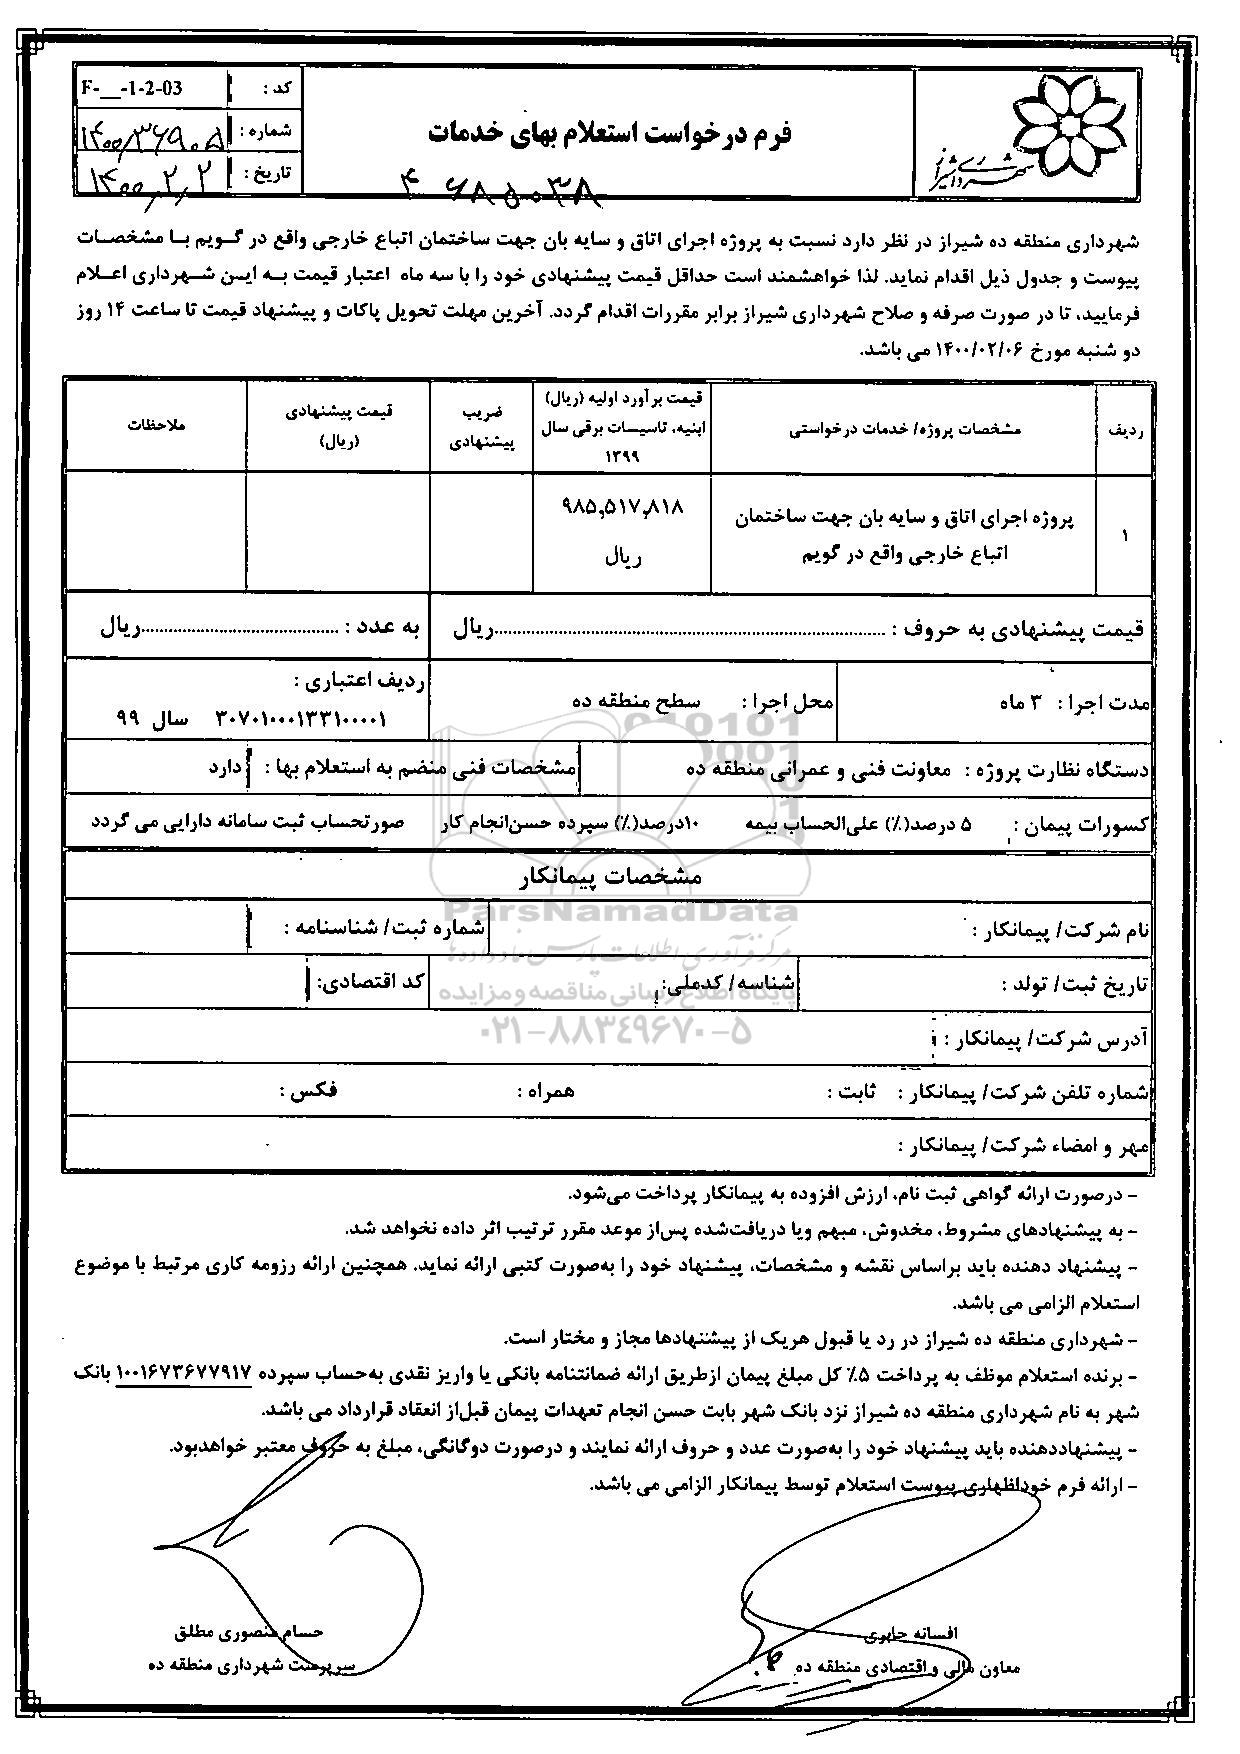 شهرداری شیراز
فرم درخواست استعلام بهای خدمات
کد : F-__-1-2-03
شماره : ۱۴۰۰/۳۶۹۰۵
تاریخ : ۱۴۰۰/۲/۲
شهرداری منطقه ده شیراز در نظر دارد نسبت به پروژه اجرای اتاق و سایه بان جهت ساختمان اتباع خارجی واقع در گویم با مشخصات
پیوست و جدول ذیل اقدام نماید. لذا خواهشمند است حداقل قیمت پیشنهادی خود را با سه ماه اعتبار قیمت به این شهرداری اعلام
فرمایید، تا در صورت صرفه و صلاح شهرداری شیراز برابر مقررات اقدام گردد. آخرین مهلت تحویل پاکات و پیشنهاد قیمت تا ساعت ۱۴ روز
دو شنبه مورخ ۱۴۰۰/۰۲/۰۶ می باشد.
ردیف
مشخصات پروژه/ خدمات درخواستی
قیمت برآورد اولیه (ریال)
ابنیه، تاسیسات برقی سال
۱۳۹۹
ضریب
پیشنهادی
قیمت پیشنهادی
(ریال)
ملاحظات
۱
پروژه اجرای اتاق و سایه بان جهت ساختمان
اتباع خارجی واقع در گویم
۹۸۵,۵۱۷,۸۱۸
ریال
قیمت پیشنهادی به حروف : ..........ریال به عدد : ..........ریال
مدت اجرا : ۳ ماه محل اجرا : سطح منطقه ده
ردیف اعتباری :
۳۰۷۰۱۰۰۰۱۳۳۱۰۰۰۰۱ سال ۹۹
دستگاه نظارت پروژه : معاونت فنی و عمرانی منطقه ده مشخصات فنی منضم به استعلام بها : دارد
کسورات پیمان : ۵ درصد(٪) علی‌الحساب بیمه ۱۰درصد(٪) سپرده حسن‌انجام کار صورتحساب ثبت سامانه دارایی می گردد
مشخصات پیمانکار
نام شرکت/ پیمانکار : شماره ثبت/ شناسنامه :
تاریخ ثبت/ تولد : شناسه/ کدملی: کد اقتصادی:
آدرس شرکت/ پیمانکار :
شماره تلفن شرکت/ پیمانکار : ثابت : همراه : فکس :
مهر و امضاء شرکت/ پیمانکار :
ParsNamadData
مرکز فرآوری اطلاعات پارس نماد داده ها
پایگاه اطلاع رسانی مناقصه و مزایده
۰۲۱-۸۸۳۴۹۶۷۰-۵
- درصورت ارائه گواهی ثبت نام، ارزش افزوده به پیمانکار پرداخت می‌شود.
- به پیشنهادهای مشروط، مخدوش، مبهم ویا دریافت‌شده پس‌از موعد مقرر ترتیب اثر داده نخواهد شد.
- پیشنهاد دهنده باید براساس نقشه و مشخصات، پیشنهاد خود را به‌صورت کتبی ارائه نماید. همچنین ارائه رزومه کاری مرتبط با موضوع
استعلام الزامی می باشد.
- شهرداری منطقه ده شیراز در رد یا قبول هریک از پیشنهادها مجاز و مختار است.
- برنده استعلام موظف به پرداخت ۵٪ کل مبلغ پیمان ازطریق ارائه ضمانتنامه بانکی یا واریز نقدی به‌حساب سپرده ۱۰۰۱۶۷۳۶۷۷۹۱۷ بانک
شهر به نام شهرداری منطقه ده شیراز نزد بانک شهر بابت حسن انجام تعهدات پیمان قبل‌از انعقاد قرارداد می باشد.
- پیشنهاددهنده باید پیشنهاد خود را به‌صورت عدد و حروف ارائه نمایند و درصورت دوگانگی، مبلغ به حروف معتبر خواهدبود.
- ارائه فرم خوداظهاری پیوست استعلام توسط پیمانکار الزامی می باشد.
افسانه جابری
معاون مالی و اقتصادی منطقه ده
حسام منصوری مطلق
سرپرست شهرداری منطقه ده